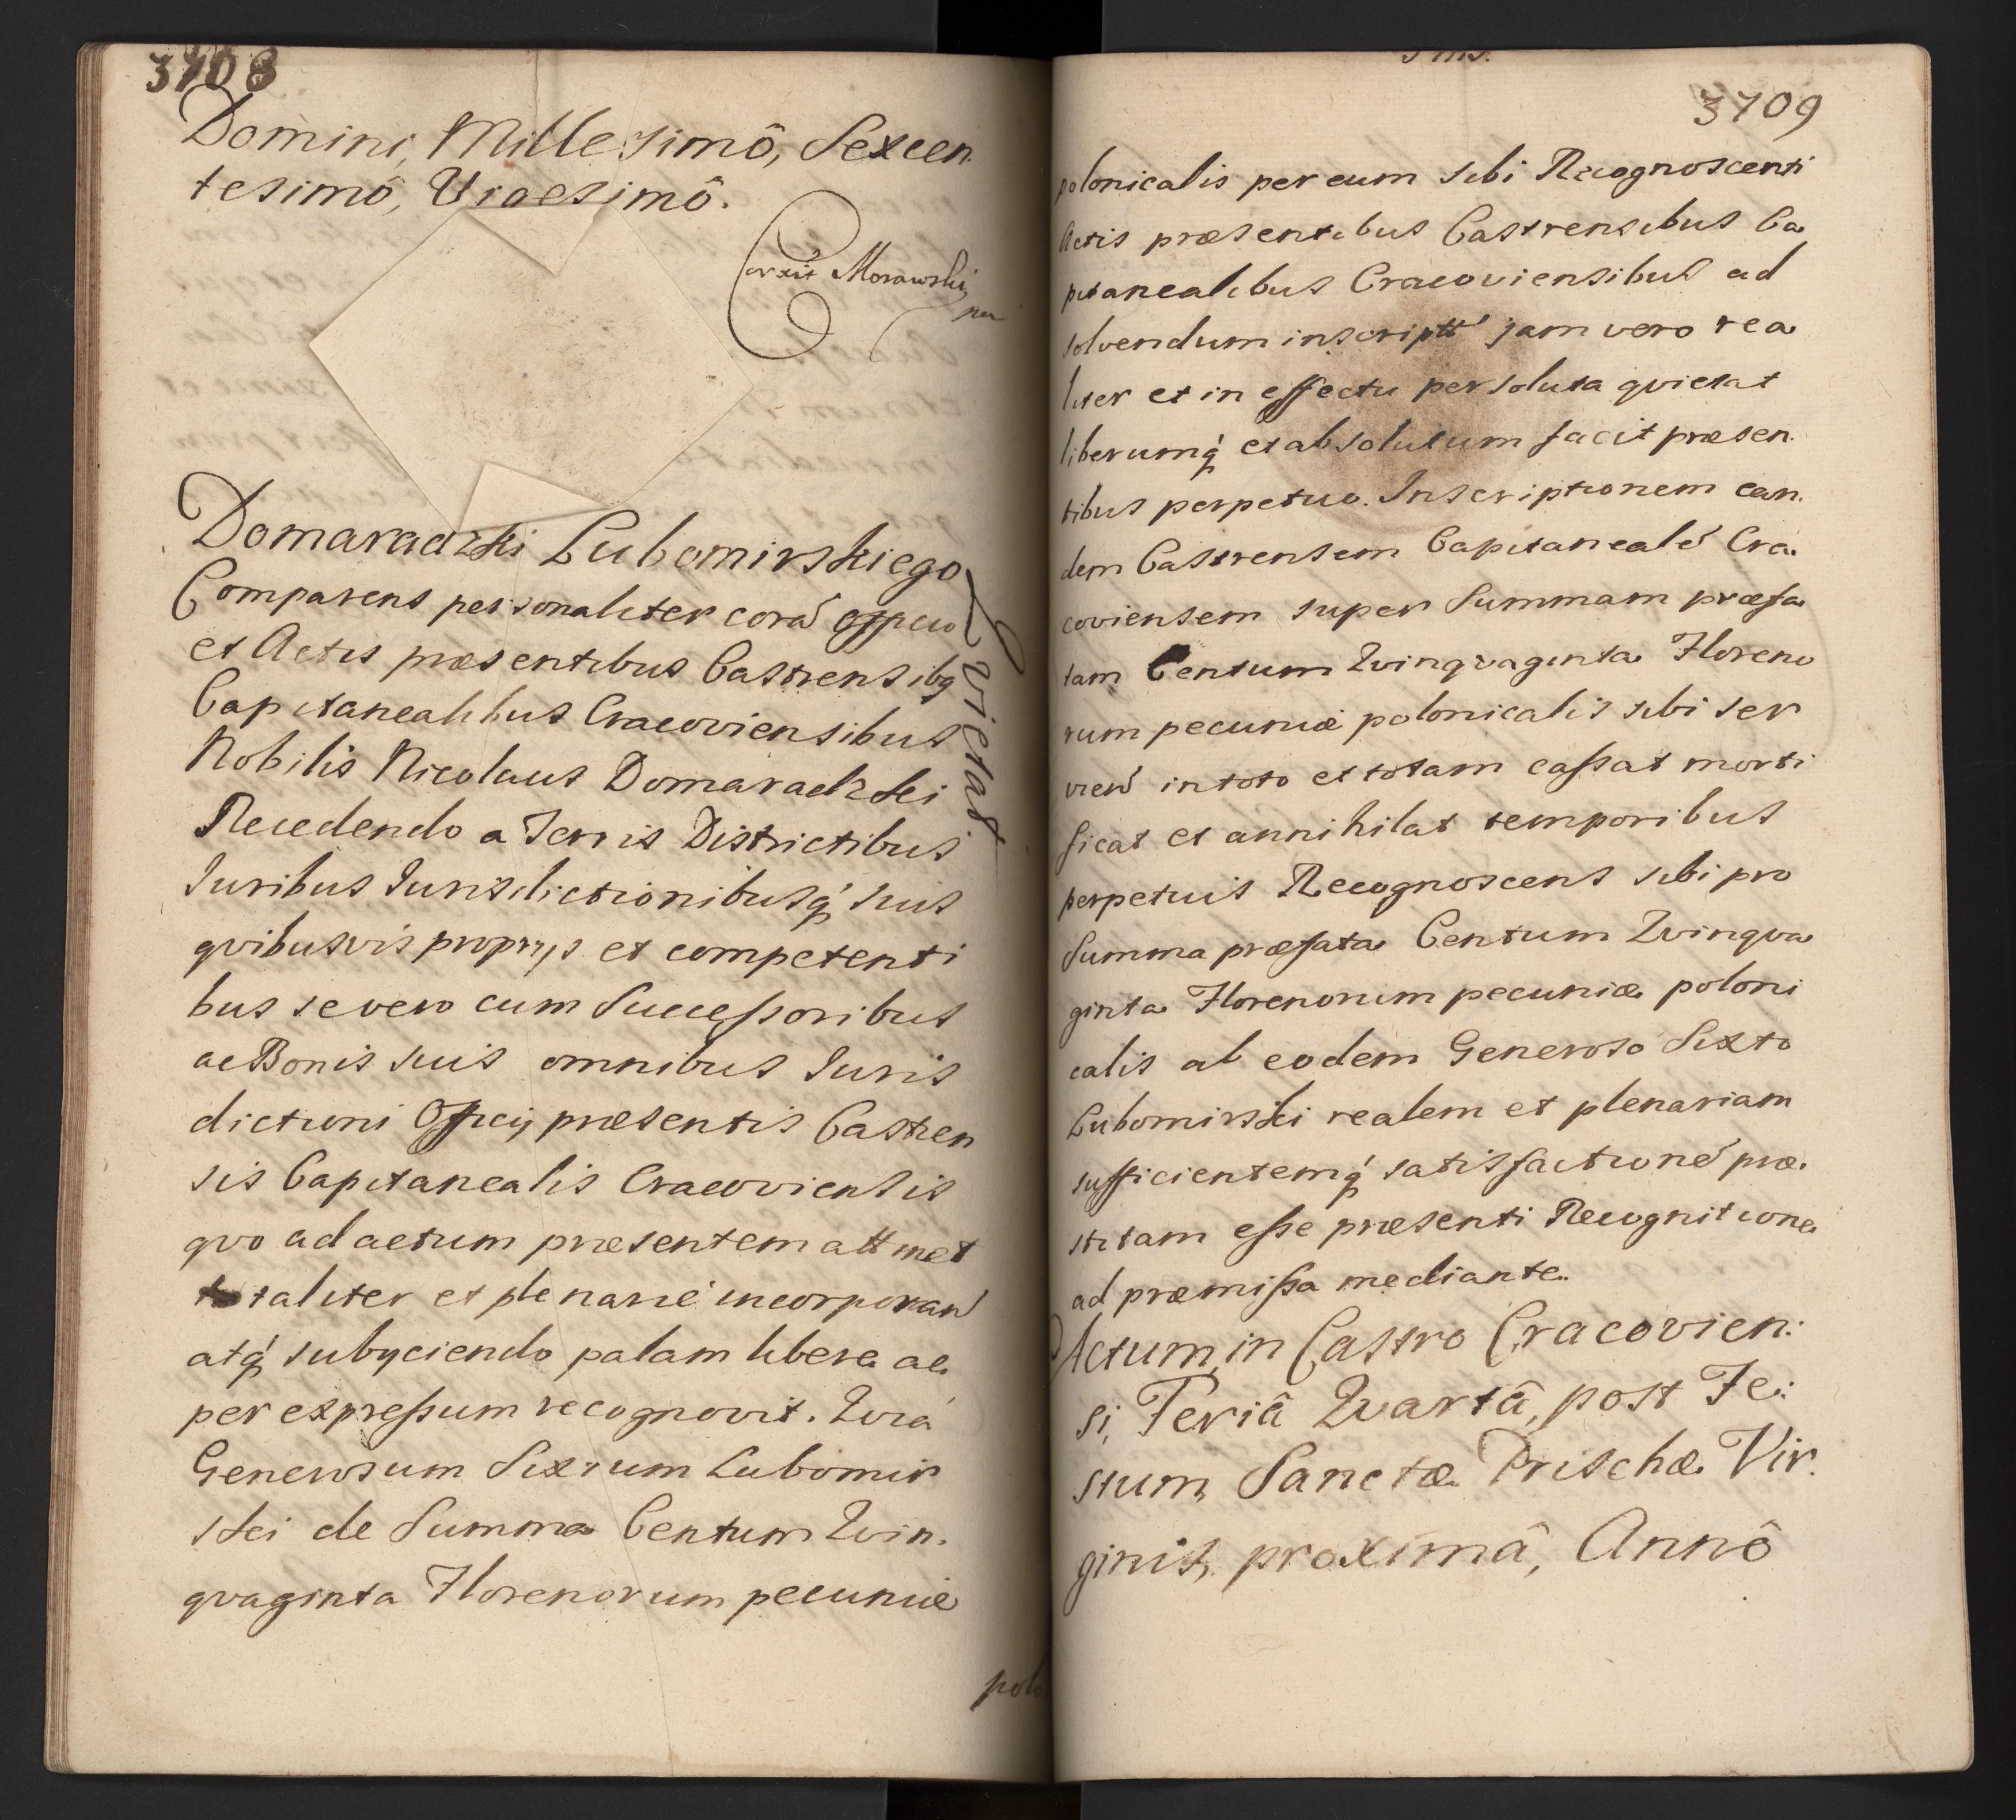 3708
Domini, Millesimô, Sexcen
tesimô, Vigesimô.
Corxit Morawski
Domaradzki Lubomirskiego
Quietat
Comparens personaliter corā Officio
et Actis præsentibus Castrensibq
Capitanealibus Cracoviensibus
Nobilis Nicolaus Domaradzki
Recedendo a Terris Districtibus
Iuribus Iurisdictionibusq́ suis
qvibusvis proprijs et competenti
bus se vero cum Successoribus
ac Bonis suis omnibus Iuris
dictioni Officij præsentis Castren
sis Capitanealis Cracoviensis
qvo ad actum præsentem attinet
totaliter et plenarie incorporan̄
atq́ subijciendo palam libere ac
per expressum recognovit. Quia
Generosum Sixtum Lubomir
ski de Summa Centum Qvin.
qvaginta Florenorum pecuniæ
polo
3709
polonicalis per eum sibi Recognoscenti
Actis præsentibus Castrensibus Ca
pitanealibus Cracoviensibus ad
solvendum inscriptt jam vero rea
liter et in effectu persoluta qvietat
liberumq́ et absolutum facit præsen.
tibus perpetuo. Inscriptionem ean.
dem Castrensem Capitanealē Cra.
coviensem super Summam præfa
tam Centum Qvinqvaginta Floreno
rum pecuniæ polonicalis sibi ser
vien̄ in toto et totam cassat morti
ficat et annihilat temporibus
perpetuis Recognoscens sibi pro
Summa præfata Centum Qvinqva
ginta Florenorum pecuniæ poloni
calis ab eodem Generoso Sixto
Lubomirski realem et plenariam
sufficientemq́ satisfactionē præ.
stitam esse præsenti Recognitione
ad præmissa mediante.
Actum, in Castro Cracovien:
si, Feriâ Qvartâ, post Fe:
stum, Sanctæ Prischæ Vir.
ginis, proximâ, Annô